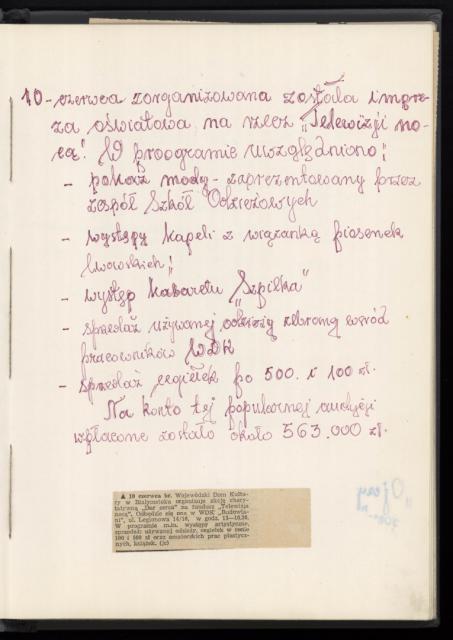 10 - czerwca zorganizowana została impre-
za oświatowa na rzecz „Telewizji no-
cą". W proogramie uwzględniono;
- pokaz mody - zaprezentowany przez
zespół Szkół Odzieżowych
- występy kapeli z wiązanką piosenek
lwowskich;
- występ kabaretu „Szpilka"
- sprzedaż używanej odzieży zebraną wśród
pracowników WDK
- sprzedaż cegiełek po 500. i 100 zł.
Na konto tej popularnej audycji
wpłacone zostało około 563.000 zł.
▲ 10 czerwca br. Wojewódzki Dom Kultu-
ry w Białymstoku organizuje akcję chary-
tatywną „Dar serca" na fundusz „Telewizja
nocą". Odbędzie się ona w WDK „Budowla-
ni", ul. Legionowa 14/16, w godz. 13—16.30.
W programie m.in. występy artystyczne,
sprzedaż: używanej odzieży, cegiełek w cenie
100 i 500 zł oraz amatorskich prac plastycz-
nych, książek. (jc)